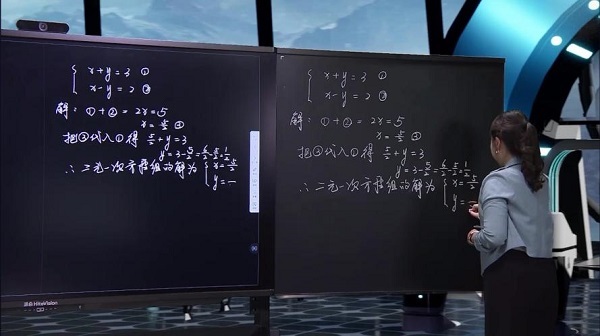 x+y=3 ①
x-y=2 ②
解:①+②=2x=5
x=5/2 ③
把③代入①得 5/2+y=3
y=3-5/2=6/2-5/2=1/2
∴二元一次方程组的解为 { x=5/2
y=
x+y=3 ①
x-y=2 ②
解:①+②=2x=5
x=5/2 ③
把③代入①得 5/2+y=3
y=3-5/2=6/2-5/2=1/2
∴二元一次方程组的解为 { x=5/2
y=
HiteVision